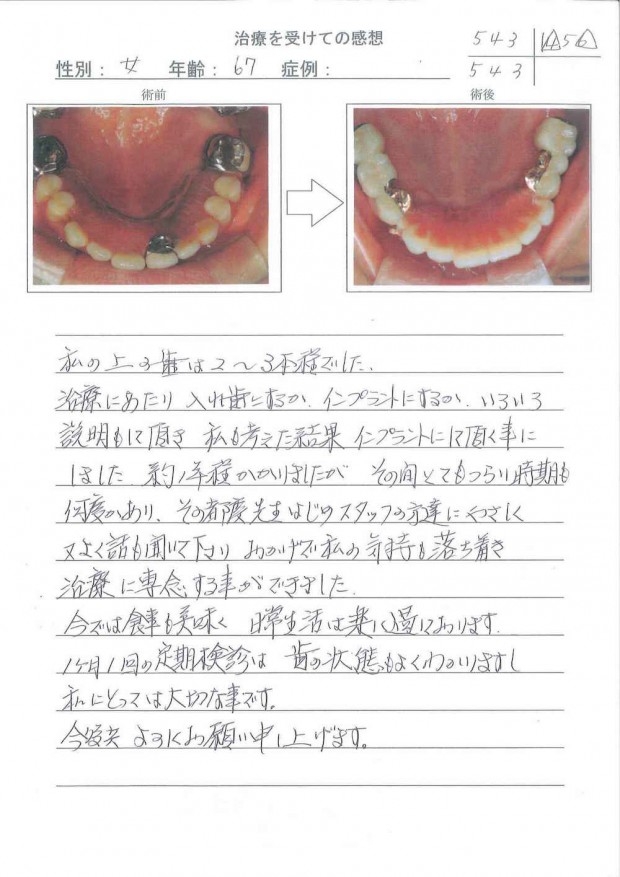 治療を受けての感想
543
543
性別： 女 年齢： 67 症例：
術前
術後
私の上の歯は2～3本程でした。
治療にあたり 入れ歯にするか、インプラントにするか、いろいろ
説明もして頂き 私も考えた結果 インプラントにして頂く事に
しました。約1年程かかりましたが その間とてもつらい時期も
何度かあり、その都度先生はじめスタッフの方達にやさしく
又よく話も聞いて下り おかげで私の気持も落ち着き
治療に専念する事ができました。
今では食事も美味く 日常生活は楽に過しております。
1ヶ月1回の定期検診は 歯の状態もよくわかりますし
私にとっては大切な事です。
今後共 よろしくお願い申し上げます。